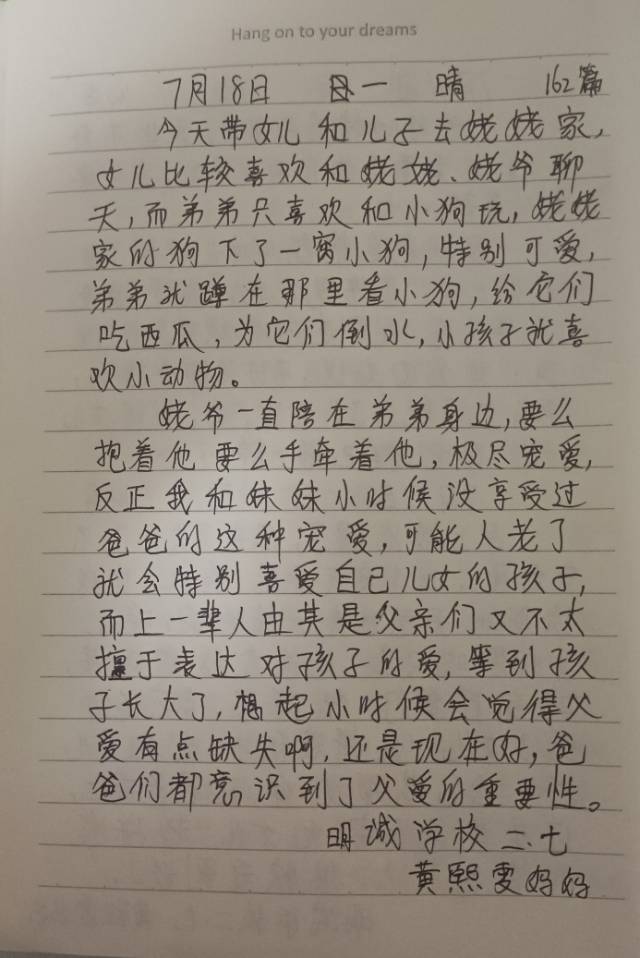 Hang on to your dreams
7月18日 周一 晴 162篇
今天带女儿和儿子去姥姥家,
女儿比较喜欢和姥姥、姥爷聊
天,而弟弟只喜欢和小狗玩,姥姥
家的狗下了一窝小狗,特别可爱,
弟弟就蹲在那里看小狗,给它们
吃西瓜,为它们倒水,小孩子就喜
欢小动物。
姥爷一直陪在弟弟身边,要么
抱着他要么手牵着他,极尽宠爱,
反正我和妹妹小时候没享受过
爸爸的这种宠爱,可能人老了
就会特别喜爱自己儿女的孩子,
而上一辈人由其是父亲们又不太
擅于表达对孩子的爱,等到孩
子长大了,想起小时候会觉得父
爱有点缺失啊,还是现在好,爸
爸们都意识到了父爱的重要性。
明诚学校二.七
黄熙雯妈妈